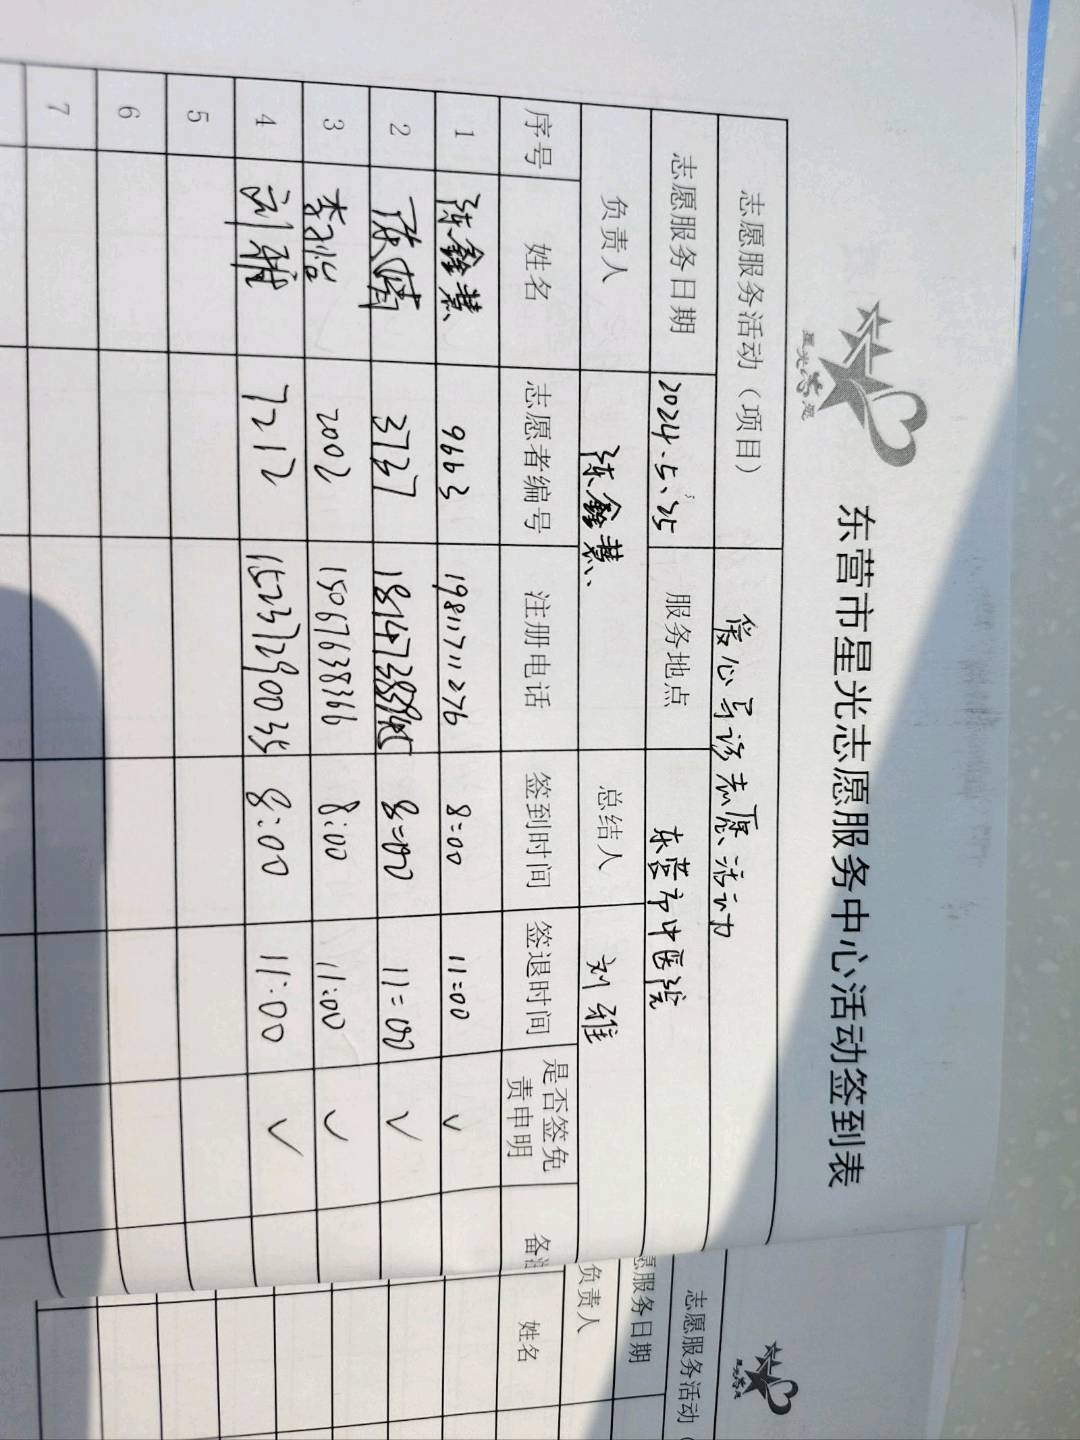 东营市星光志愿服务中心活动签到表
志愿服务活动（项目） 爱心导诊志愿活动
志愿服务日期 2024.5.25 服务地点 东营市中医院
负责人 张鑫慧 总结人 刘雅
序号 姓名 志愿者编号 注册电话 签到时间 签退时间 是否签免责申明 备注
1 张鑫慧 9663 19811711276 8:00 11:00 ✓
2 3737 8:00 11:00 ✓
3 李怡 2002 15067638366 8:00 11:00 ✓
4 刘雅 7212 8:00 11:00 ✓
5
6
7
志愿服务活动（
愿服务日期
负责人
姓名